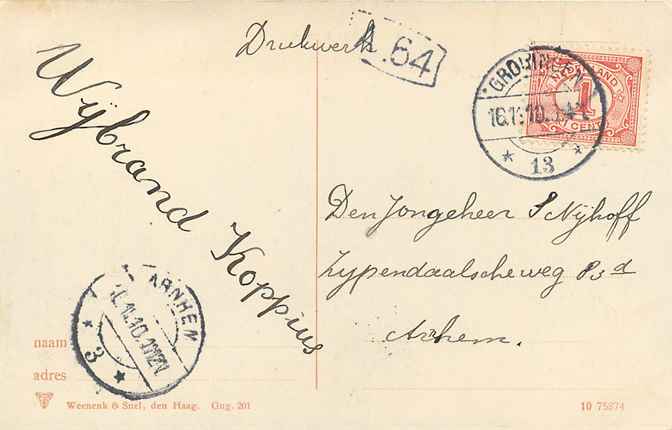 Drukwerk
A.64
GRONINGEN
16.11.10.
13
NEDERLAND
1
CENT
Wijbrand Koppius
Den Jongeheer S Nijhoff
Zypendaalscheweg 83d
Arnhem.
ARNHEM
3
naam
adres
Weenenk & Snel, den Haag. Gug. 201
10 75874